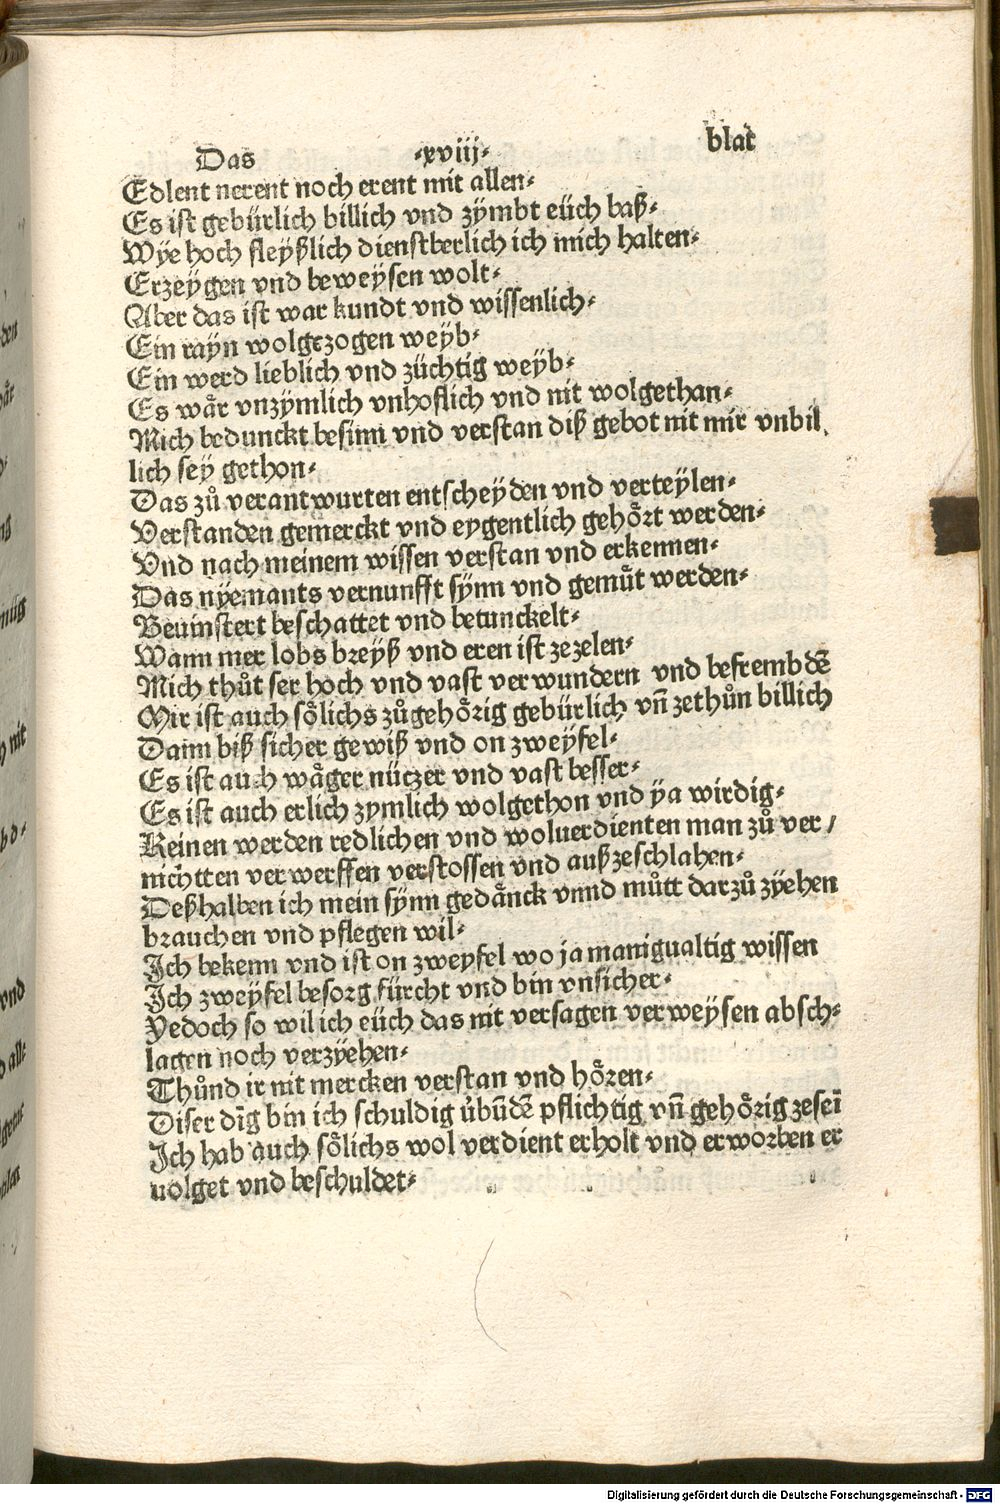 Das ·xviij· blat
Edlent nerent noch erent mit allen·
Es ist gebürlich billich vnd zÿmbt eüch baß·
Wÿe hoch fleÿßlich dienstberlich ich mich halten·
Erzeÿgen vnd beweÿsen wolt·
Aber das ist war kundt vnd wissenlich·
Ein raÿn wolgezogen weÿb·
Ein werd lieblich vnd züchtig weÿb·
Es wåͤr vnzÿmlich vnhoflich vnd nit wolgethan·
Mich bedunckt besinn vnd verstan diß gebot nit mir vnbil
lich seÿ gethon·
Das zů verantwurten entscheÿden vnd verteÿlen·
Verstanden gemerckt vnd eygentlich gehoͤrt werden·
Vnd nach meinem wissen verstan vnd erkennen·
Das nÿemants vernunfft sÿnn vnd gemuͤt werden·
Beuinstert beschattet vnd betunckelt·
Wann mer lobs breÿß vnd eren ist zezelen·
Mich thůt ser hoch vnd vast verwundern vnd befrembdē
Mir ist auch soͤlichs zůgehoͤrig gebürlich vn̄ zethůn billich
Dann biß sicher gewiß vnd on zweÿfel·
Es ist auch waͤger nützer vnd vast besser·
Es ist auch erlich zymlich wolgethon vnd ÿa wirdig·
Keinen werden redlichen vnd woluerdienten man zů ver/
nichtten verwerffen verstossen vnd außzeschlahen·
Deßhalben ich mein sÿnn gedaͤnck vnnd můtt darzů zÿehen
brauchen vnd pflegen wil·
Ich bekenn vnd ist on zweyfel wo ja manigualtig wissen
Ich zweÿfel besorg fürcht vnd bin vnsicher·
Yedoch so wil ich eüch das nit versagen verweÿsen absch·
lagen noch verzÿehen·
Thůnd ir nit mercken verstan vnd hoͤren·
Diser dīg bin ich schuldig übūdē pflichtig vn̄ gehoͤrig zeseī
Ich hab auch soͤlichs wol verdient erholt vnd erworben er
uolget vnd beschuldet·
Digitalisierung gefördert durch die Deutsche Forschungsgemeinschaft - DFG